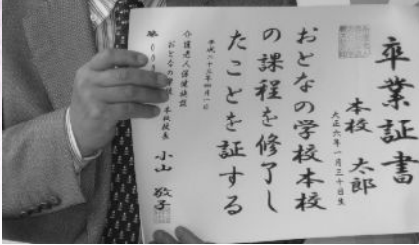 卒業証書
本校 太郎
大正六年一月三十日生
おとなの学校本校
の課程を修了し
たことを証する
平成二十三年四月一日
介護老人保健施設
おとなの学校 本校校長
小山 敬子